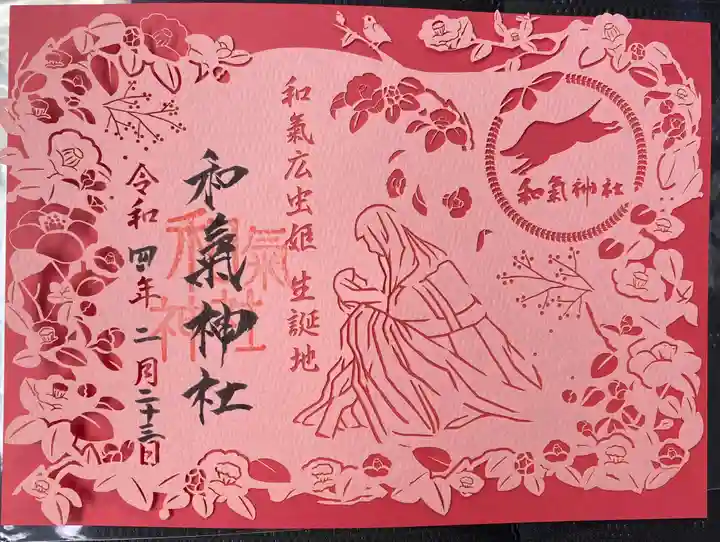 和氣神社
和氣広虫姫 生誕地
和氣神社
和氣神社
令和 四年 二月二十三日